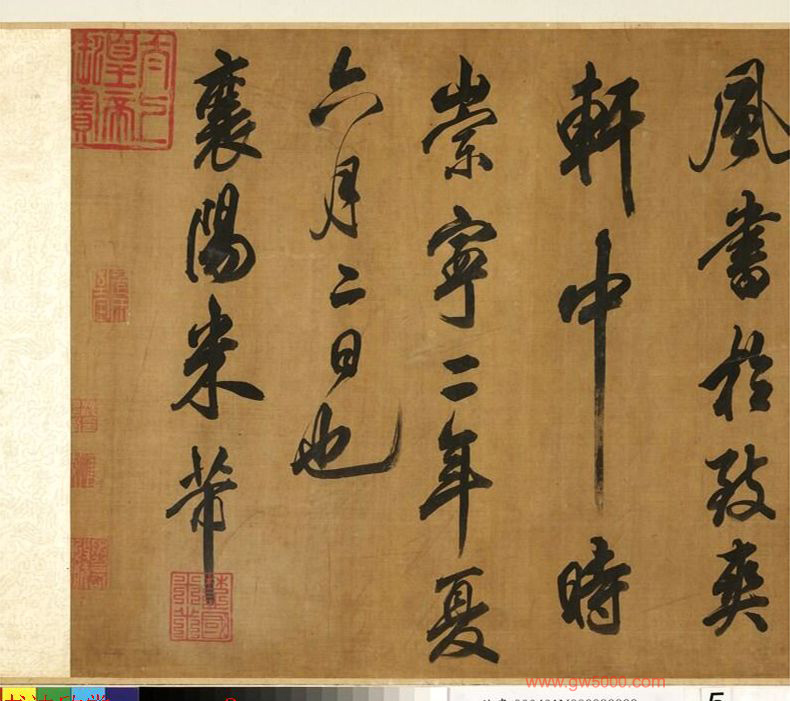 風書於致爽
軒中時
崇寧二年夏
六月二日也
襄陽米芾
www.gw5000.com
5